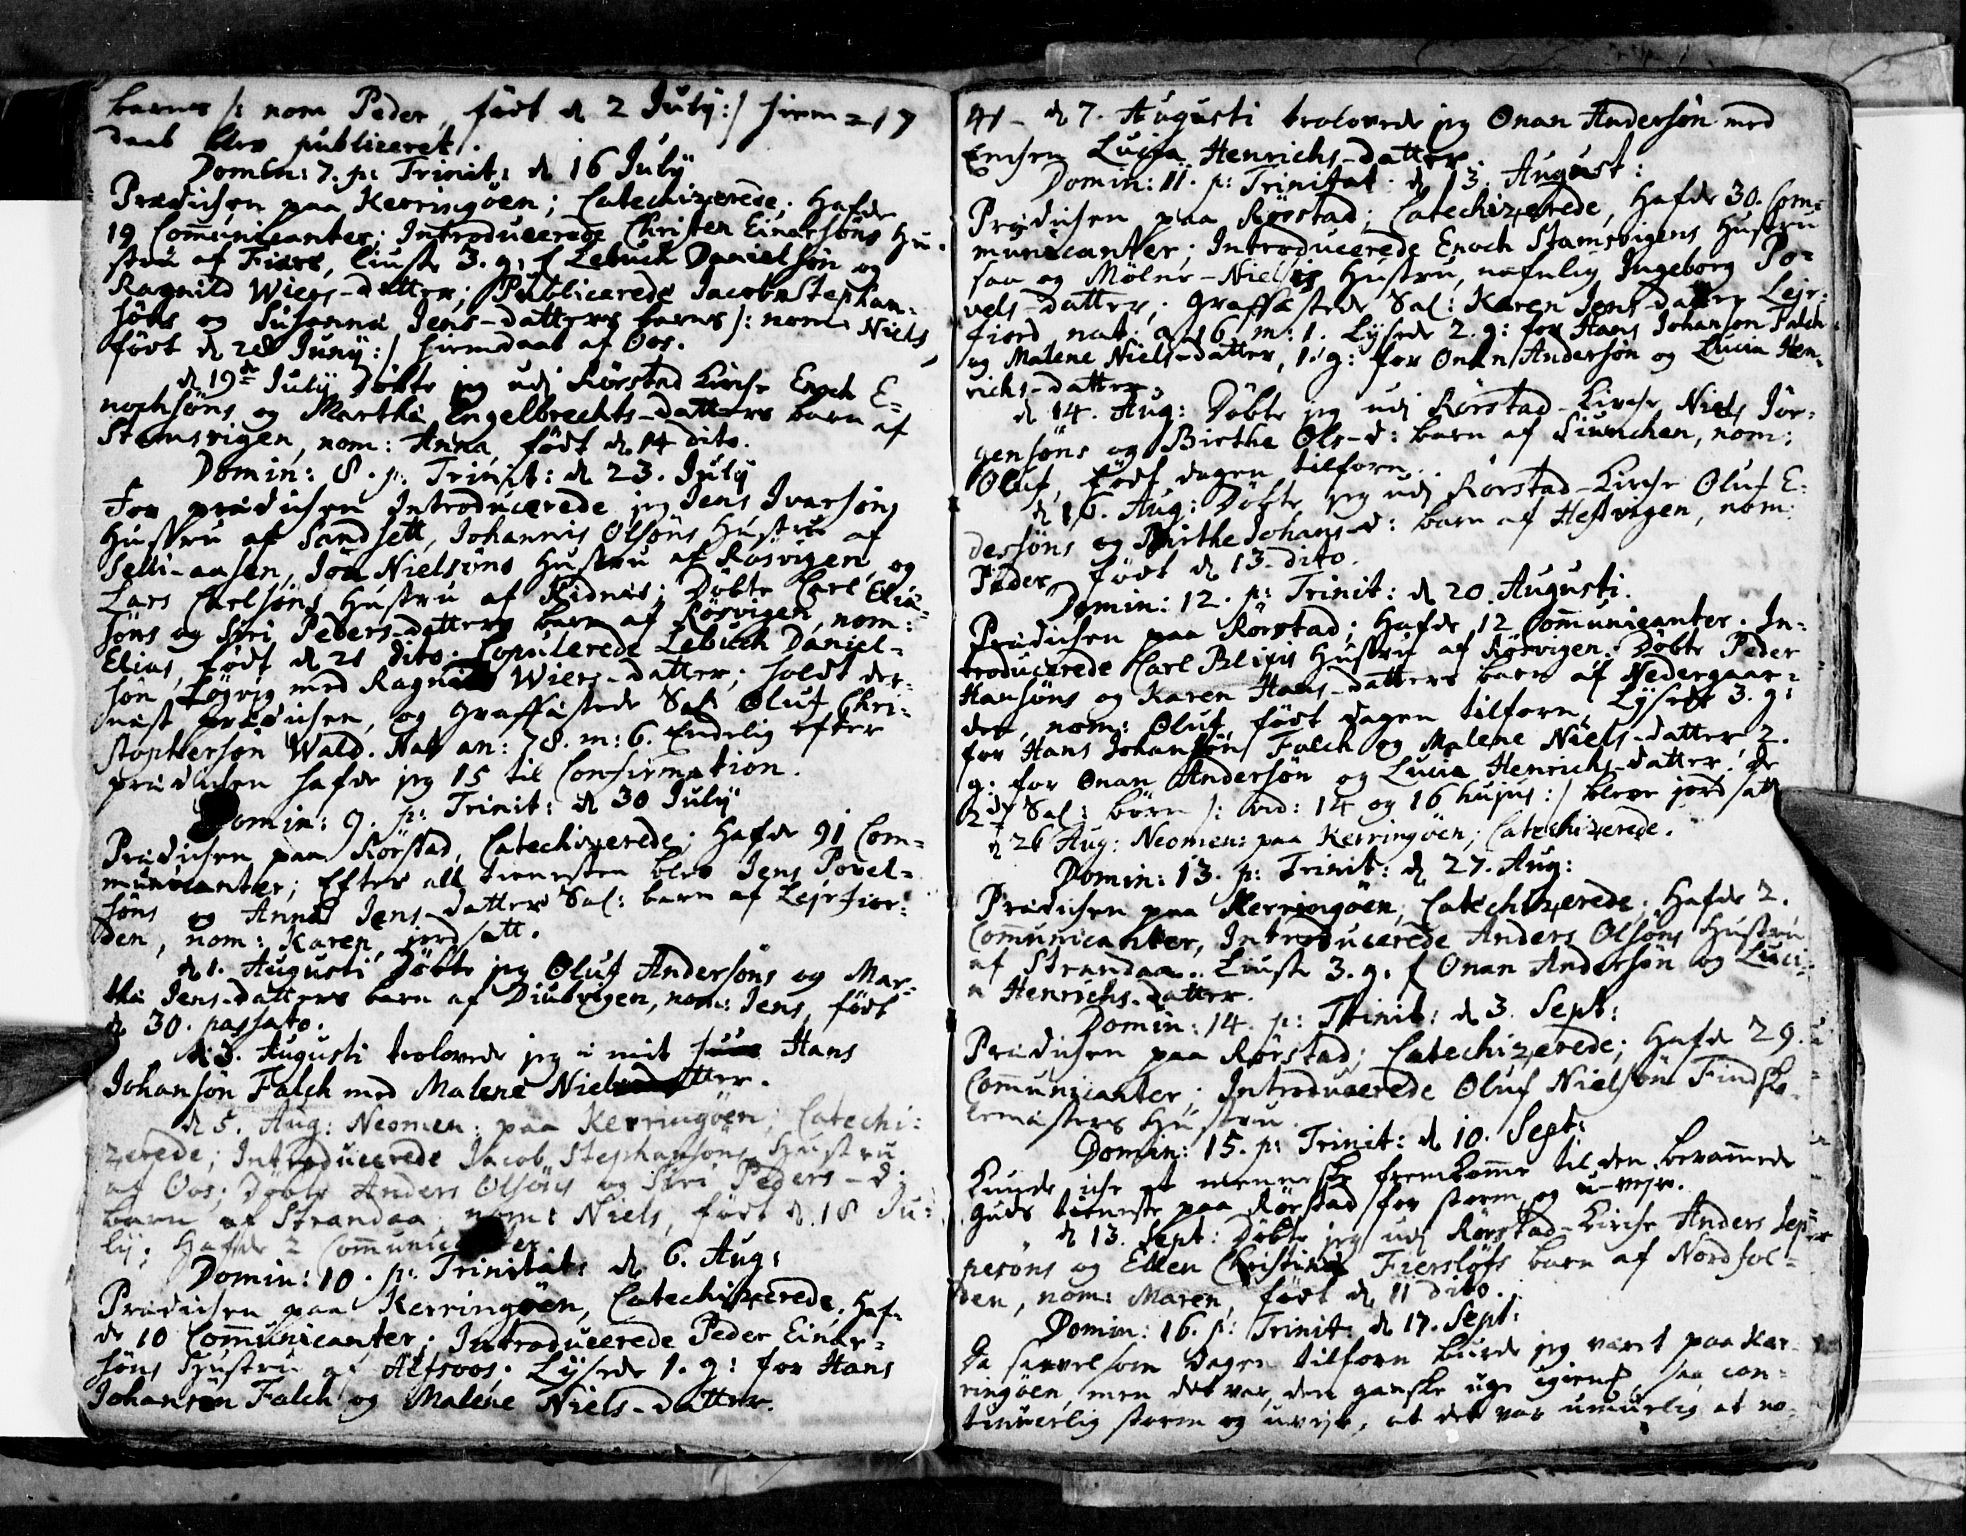 barns /: nom Peder, födt d 2 July :/ hiem = 17
daab blev publiceret.
Domin: 7. p: Trinit: d 16 July
Prædichen paa Kerringöen; Catechizerede; Hafde
19 Communicanter; Introducerede Christen Einersöns Hu-
stru af Fiære, liuste 3. g: f Lebuch Danielsön og
Ragnild Wiers-datter; Publicerede Jacob Stephan-
söns og Susanna Jens-datters barns /: nom: Niels,
födt d 28 Juny :/ hiemdaab af Oos.
d 19de July Döbte jeg udj Rörstad Kirche Enoch E-
nochsöns og Martha Engelbrechts-datters barn af
Stamsvigen, nom: Anna, födt d 14 dito.
Domin: 8. p: Trinit: d 23. July
For prædichen Introducerede jeg Jens Ivarsöns
Hustru af Sandsett, Johannis Olsöns Hustru af
Selli-aasen, Jon Nielsöns Hustru af Rösvigen, og
Lars Carlsöns Hustru af Ridnes; Döbte Carl Elia-
söns og Siri Peders-datters barn af Rösvigen, nom:
Elias, födt d 21 dito. Copulerede Lebuch Daniel-
sön Lögvig med Ragnild Wiers-datter; holdt der-
næst prædichen, og graffæstede Sal: Oluf Chri-
stophersön Wald. Nat an: 78. m: 6. Endelig efter
prædichen hafde jeg 15 til Confirmation.
Domin: 9. p: Trinit: d 30 July
Prædichen paa Rörstad, Catechizerede; Hafde 91 Com-
municanter; Efter all tienesten blev Jens Povel-
söns og Anna Jens-datters Sal: barn af Lejrfior-
den, nom: Karen, jordsatt.
d 1. Augusti Döbte jeg Oluf Andersöns og Mar-
tha Jens-datters barn af Diubvigen, nom: Jens, födt
d 30. passato.
d 3. Augusti trolovede jeg i mit huus Hans
Johansön Falch med Malene Nielsdatter.
d 5. Aug: Neomen: paa Kerringöen; Catechi-
zerede; Introducerede Jacob Stephansöns Hustru
af Oos; Döbte Anders Olsöns og Siri Peders-d:
barn af Strandaa, nom: Niels, födt d 18 Ju-
ly; Hafde 2 Communicanter
Domin: 10. p: Trinitat: d 6. Aug:
Prædichen paa Kerringöen, Catechizerede, Haf-
de 10 Communicanter; Introducerede Peder Einer-
söns Hustru af Alfsoos; Lysede 1. g: for Hans
Johansön Falch og Malene Niels-datter.
d 7. Augusti trolovede jeg Onan Andersön med
Enchen Lucia Henrichs-datter.
Domin: 11. p: Trinitat: d 13. August:
Prædichen paa Rörstad; Catechizerede, Hafde 30. Com-
municanter; Introducerede Enoch Stamsvigens Hustru
saa og Mölner-Nielses Hustru, nafnlig Ingeborg Po-
vels-datter; Graffæstede Sal: Karen Jens-datter Lejr-
fiord nat: a 16 m: 1. Lysede 2. g: for Hans Johansön Falch
og Malene Niels-datter, 1. g: for Onan Andersön og Lucia Hen-
richs-datter.
d 14. Aug: Döbte jeg udj Rörstad-Kirche Niels Jör-
gensöns og Birthe Ols-d: barn af Siunchen, nom:
Oluf, födt dagen tilforn.
d 16. Aug: Döbte jeg udj Rörstad-Kirche Oluf E-
dersöns og Birthe Johans-d: barn af Hestvigen, nom:
Peder, födt d 13. dito.
Domin: 12. p: Trinit: d 20. Augusti.
Prædichen paa Rörstad; Hafde 12 Communicanter. In-
troducerede Carl Blixes Hustru af Rörvigen. Döbte Peder
Hansöns og Karen Hans-datters barn af Nedergaar-
den, nom: Oluf, födt dagen tilforn, Lysede 3. g:
for Hans Johansön Falch og Malene Niels-datter, 2.
g: for Onan Andersön og Lucia Henrichs-datter. de
2de Sal: börn /: vid: 14 og 16 hujus :/ bleve jordsatt
d 26 Aug: Neomen: paa Kerringöen; Catechizerede.
Domin: 13. p: Trinit: d 27. Aug:
Prædichen paa Kerringöen, Catechizerede. Hafde 2.
Communicanter, Introducerede Anders Olsöns Hustru
af Strandaa. Liuste 3. g. f Onan Andersön og Luci-
a Henrichs-datter.
Domin: 14. p: Trinit: d 3. Sept:
Prædichen paa Rörstad; Catechizerede; Hafde 29.
Communicanter; Introducerede Oluf Nielsön Findsko-
lemesters Hustru.
Domin: 15. p: Trinit: d 10. Sept:
Kunde iche et menneske fremkomme til den berammede
Guds tieneste paa Rörstad for storm og u-vejr.
d 13. Sept: Döbte jeg udj Rörstad-Kirche Anders Jep-
pesöns og Ellen Christina Fierslöfs barn af Nordfol-
den, nom: Maren, födt d 11 dito.
Domin: 16. p: Trinit: d 17. Sept:
Da saavelsom dagen tilforn burde jeg været paa Kær-
ringöen, men det var den ganske uge igiennem saa con-
tinuerlig storm og uvejr, at det var umuelig at no-